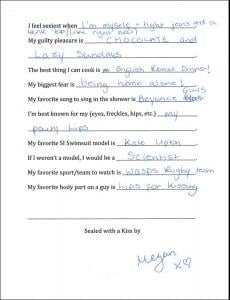 I feel sexiest when I'm myself - tight jeans and a
tank top (like right now)
My guilty pleasure is CHOCOLATE and
Lazy Sundays
The best thing I can cook is an English Roast Dinner!
My biggest fear is being home alone!
Girls
My favorite song to sing in the shower is Beyonce
I'm best known for my (eyes, freckles, lips, etc.) my
pouty lips
My favorite SI Swimsuit model is Kate Upton
If I weren't a model, I would be a Scientist
My favorite sport/team to watch is Wasps Rugby team
My favorite body part on a guy is Lips for kissing
Sealed with a Kiss by
Megan
x♡